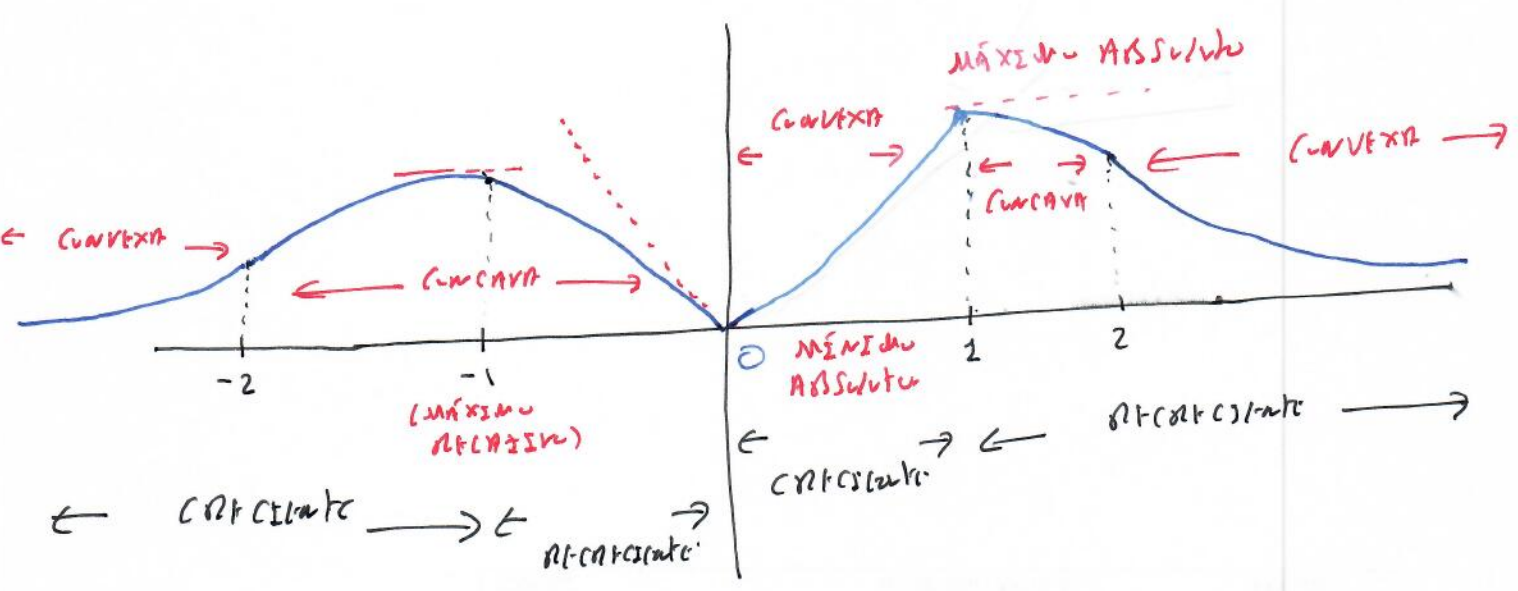 MÁXIMO ABSOLUTO
CONVEXA
CONVEXA
CONCAVA
CONVEXA
CONCAVA
-2
-1
0
MÍNIMO
ABSOLUTO
1
2
(MÁXIMO
RELATIVO)
DECRECIENTE
CRECIENTE
CRECIENTE
DECRECIENTE